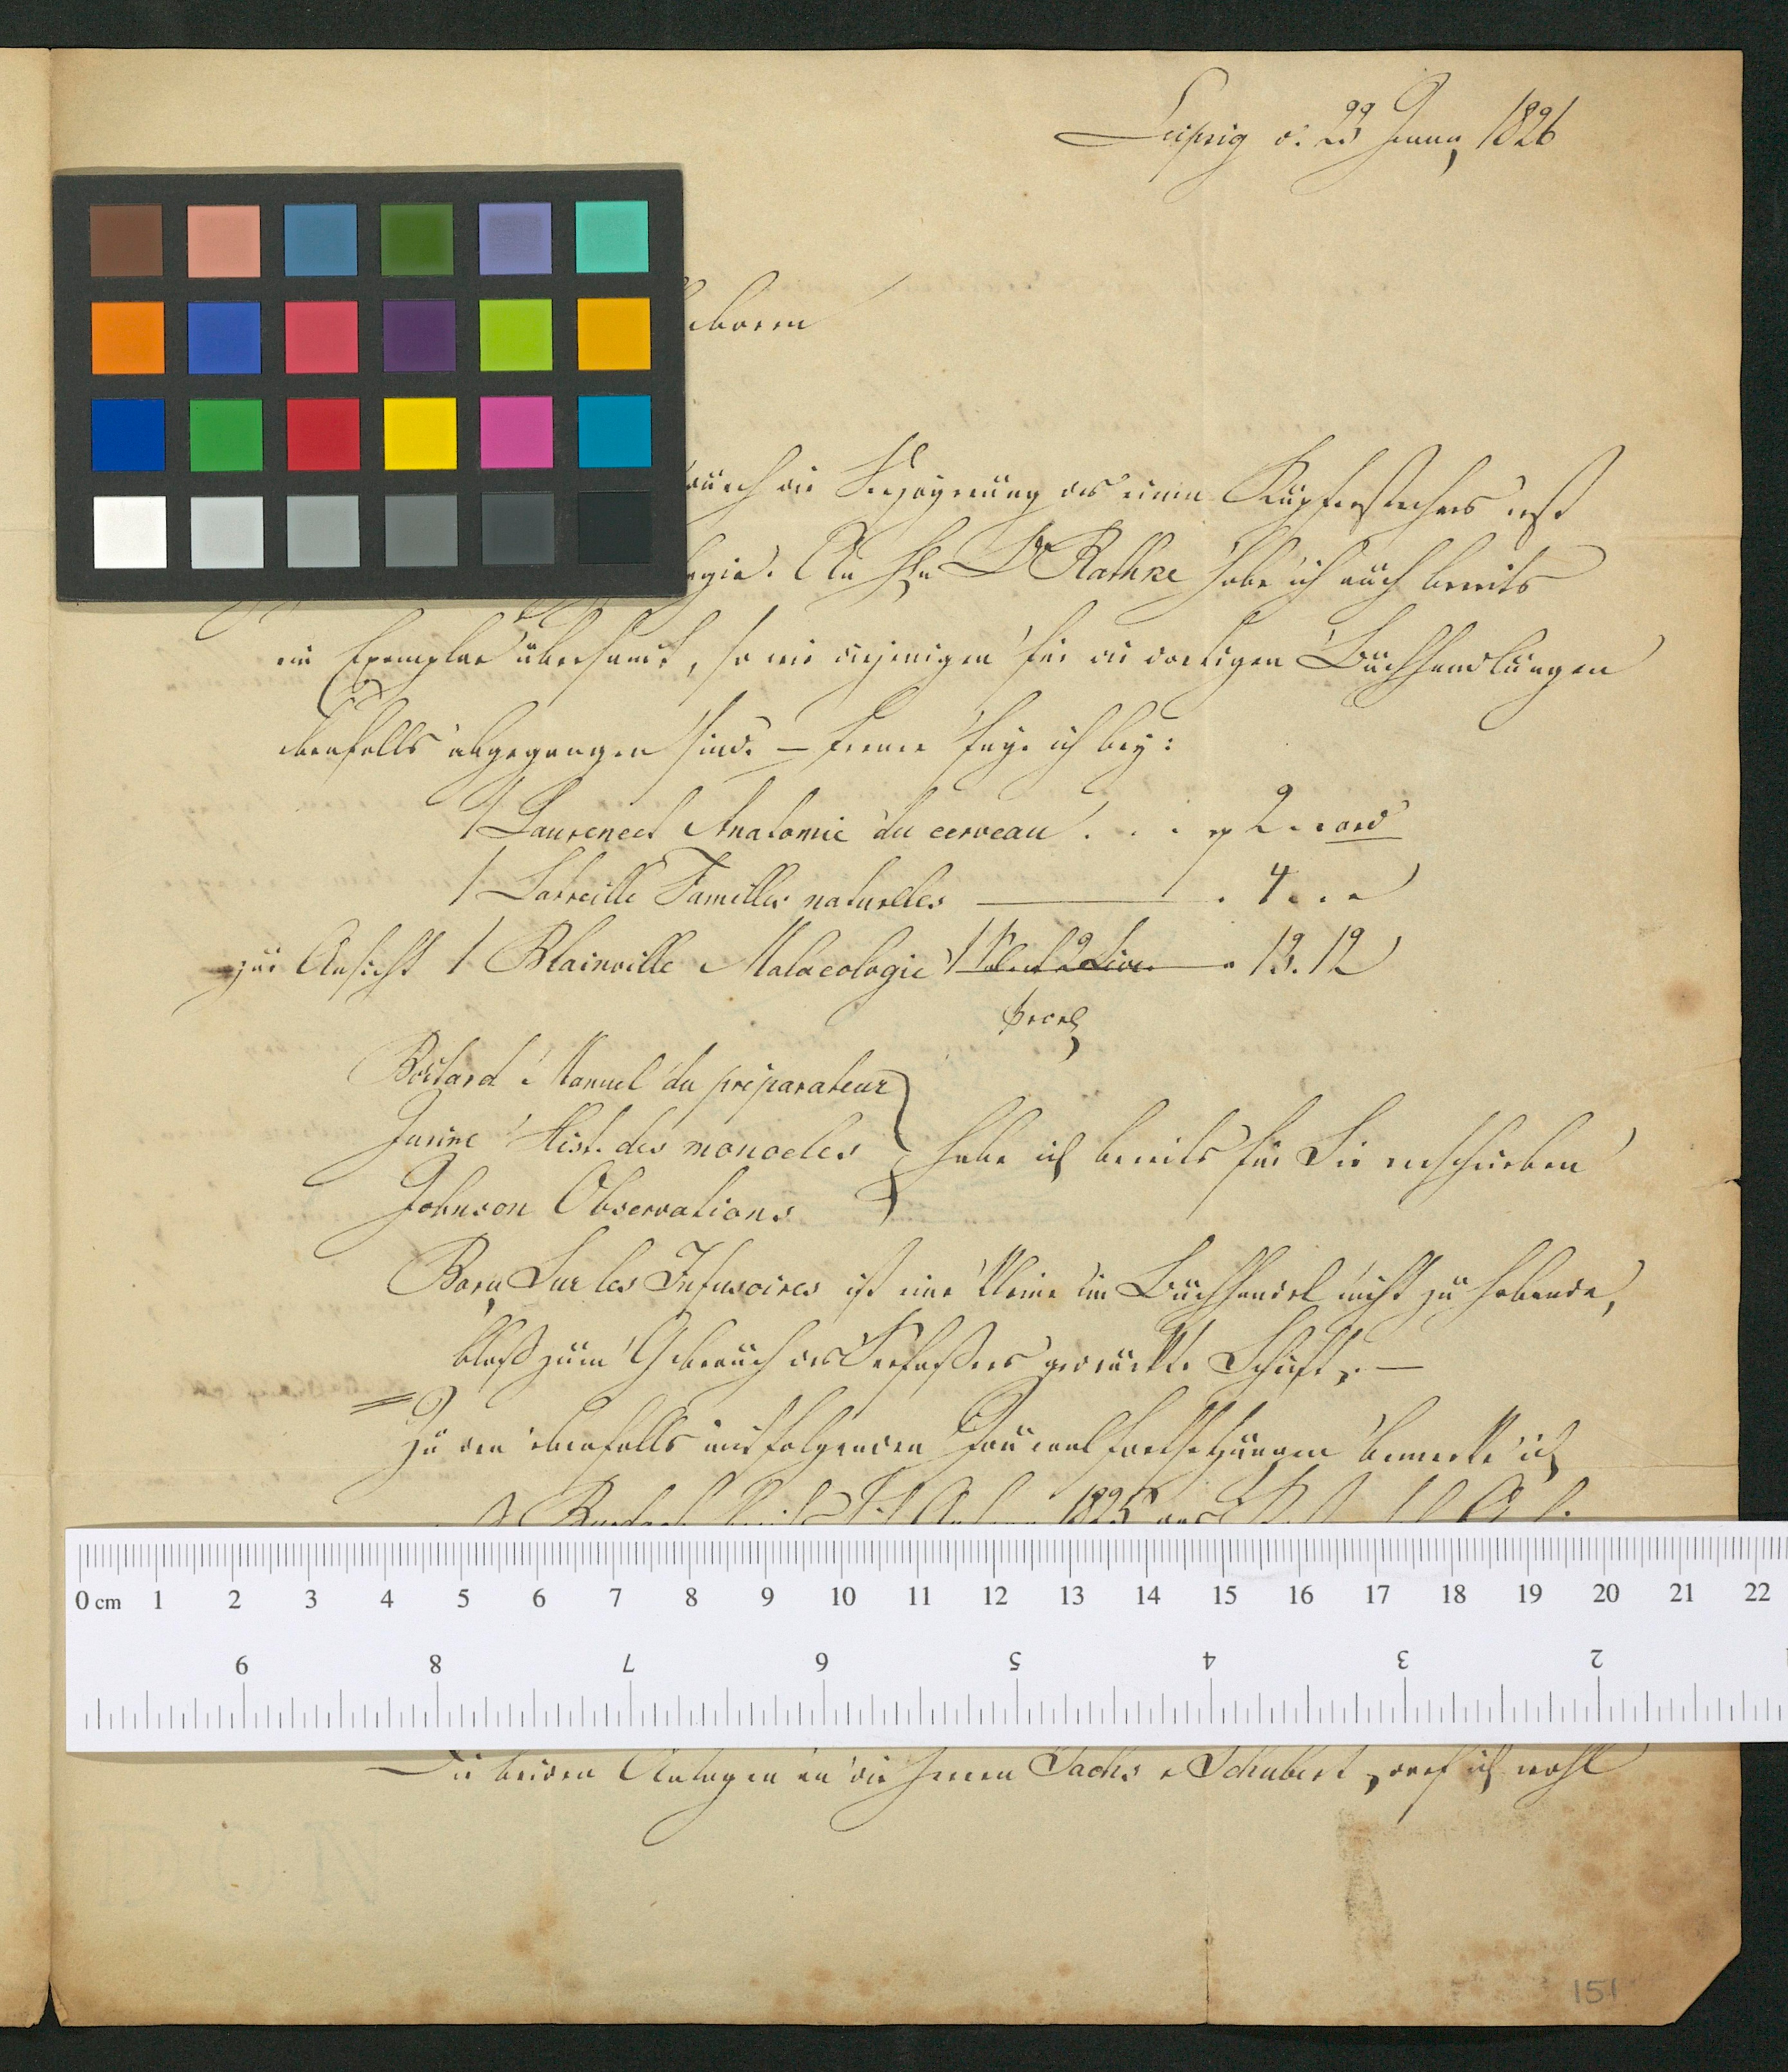 Leipzig d. 23 Januar 1826
eboren
durch die Verzögerung des einen Kupferstechers erst
gie. An Hn Dr Rathke habe ich auch bereits
ein Exemplar übersandt, so wie diejenigen für die dortigen Buchhandlungen
ebenfalls abgegangen sind. – Ferner füge ich bey:
1 Laurencet Anatomie du cerveau . . . 2 . . ord
1 Latreille Familles naturelles — . 4 . . "
zur Ansicht 1 Blainville Malacologie 1 — . 13. 12
Boitard Manuel du préparateur
Jurine Hist. des monocles habe ich bereits für Sie verschrieben
Johnson Observations
Bory Sur les Infusoires ist eine kleine im Buchhandel nicht zu habende,
bloß zum Gebrauch des Verfaßers gedruckte Schrift. —
Zu den ebenfalls mitfolgenden Journalfortsetzungen bemerke ich
1825
0 cm 1 2 3 4 5 6 7 8 9 10 11 12 13 14 15 16 17 18 19 20 21 22
9 8 7 6 5 4 3 2
Die beiden Anlagen an die Herren Sachs & Schubert darf ich wohl
151